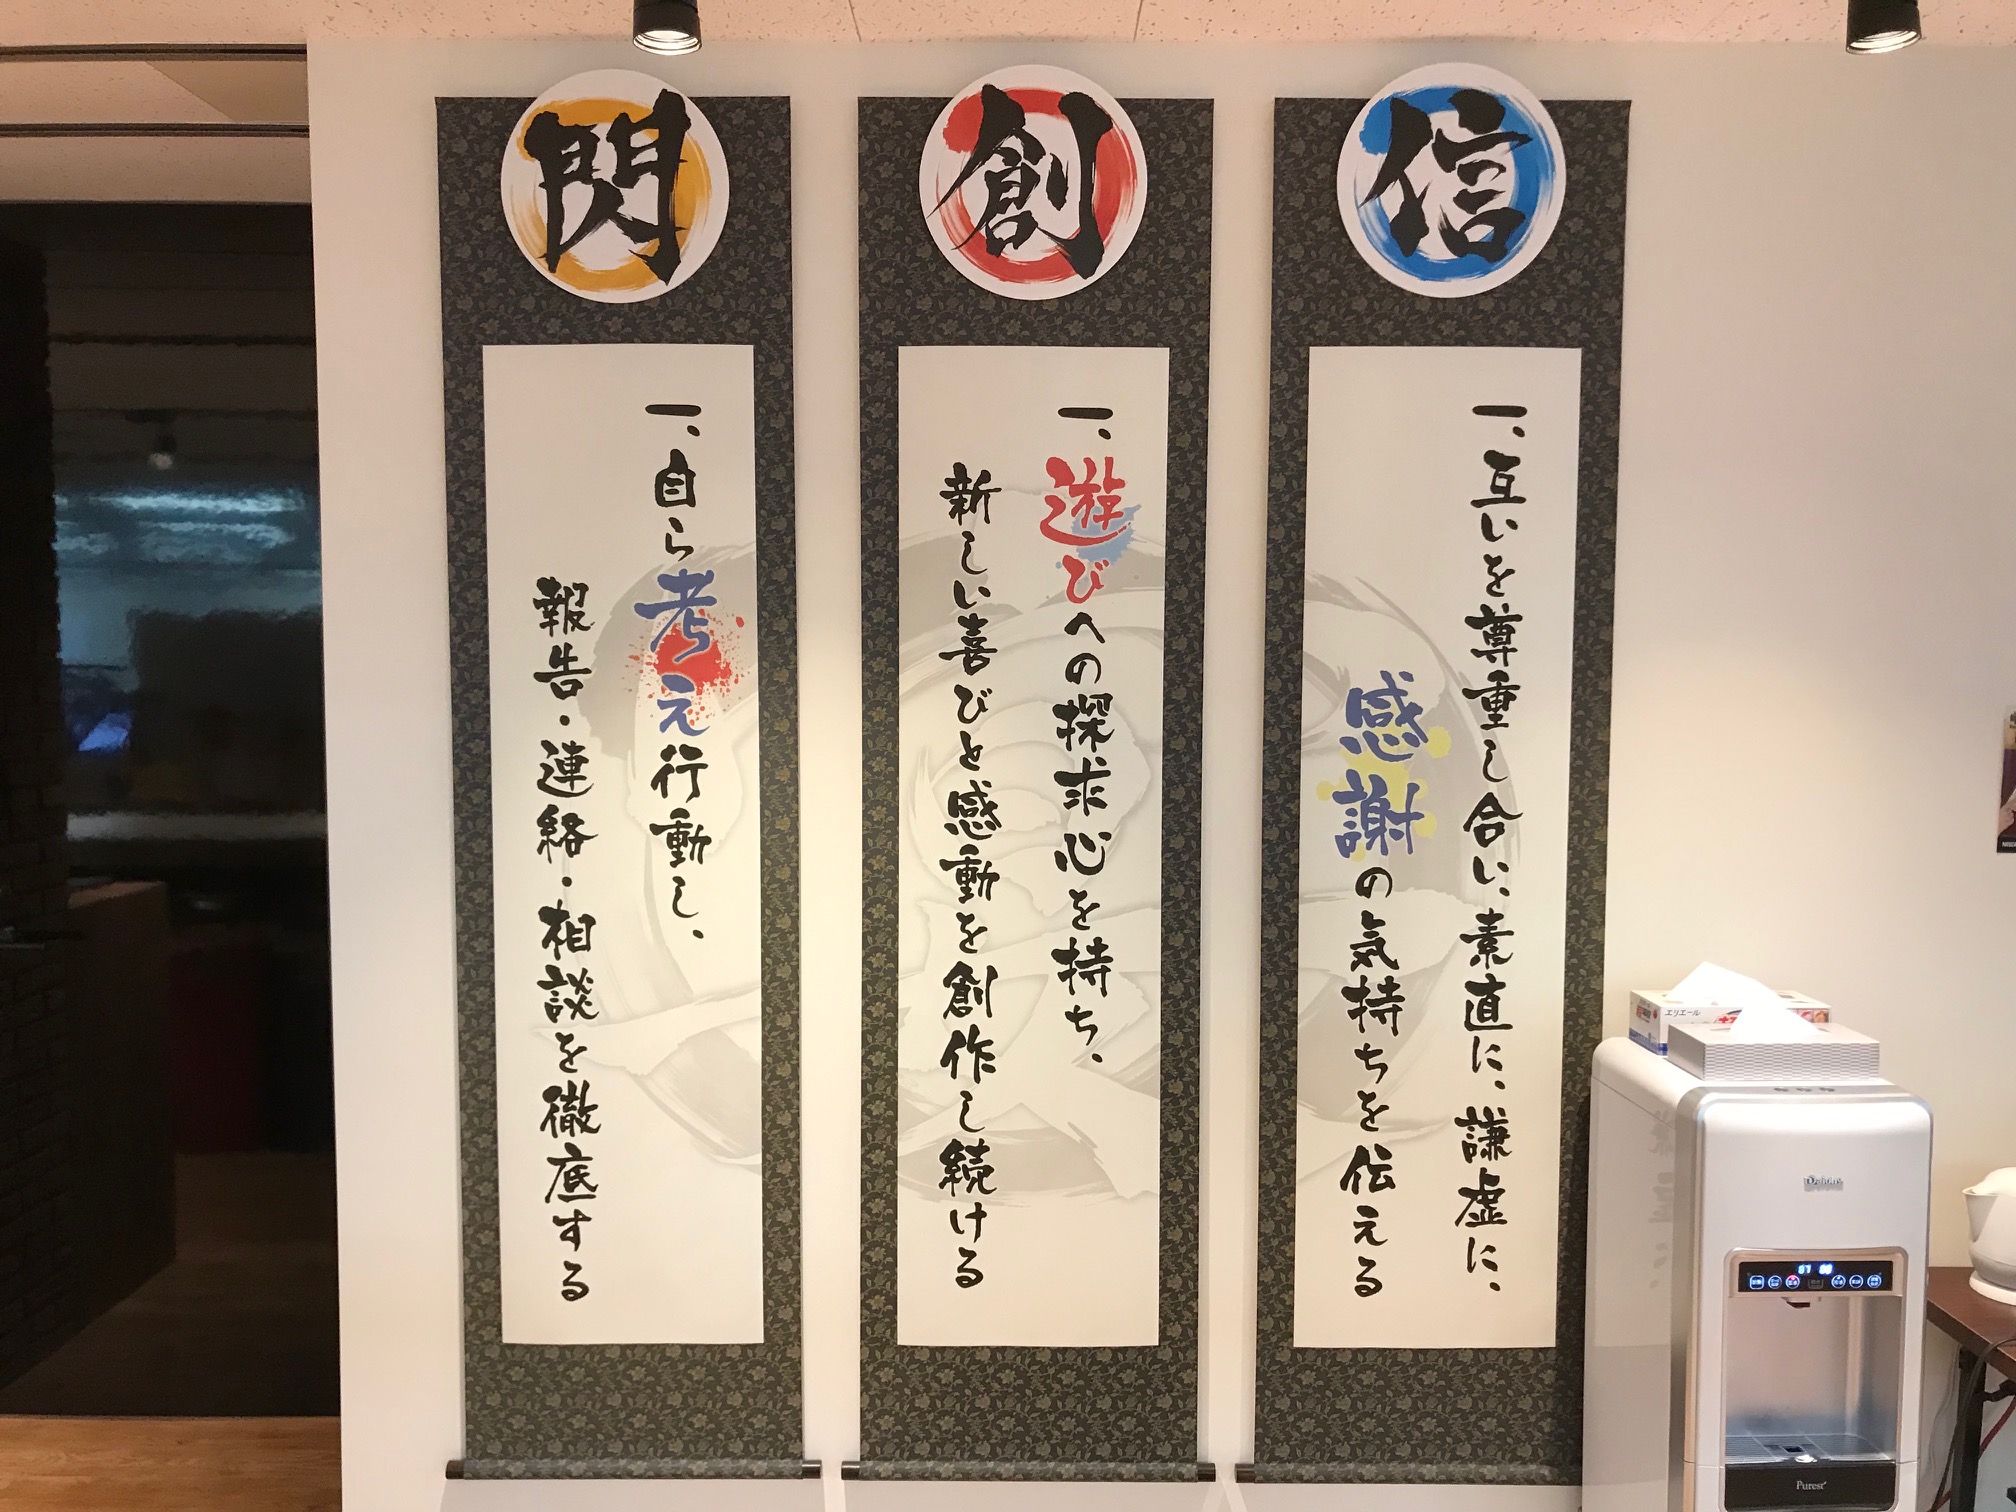 信
一、互いを尊重し合い、素直に、謙虚に、
感謝の気持ちを伝える
創
一、遊びへの探求心を持ち、
新しい喜びと感動を創作し続ける
閃
一、自ら考え行動し、
報告・連絡・相談を徹底する
エリエール
Purest